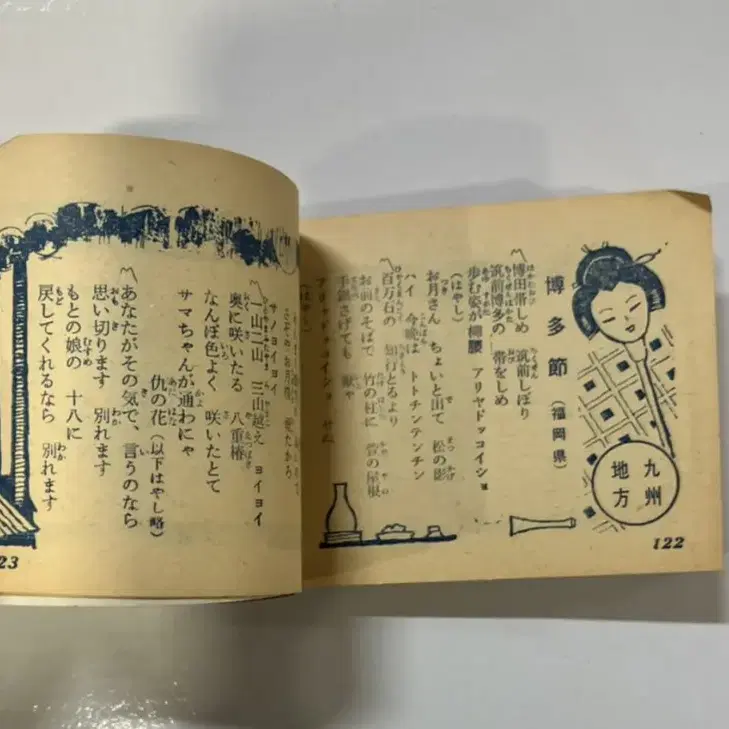 九州
地方
博多節(福岡県)
博田帯しめ 筑前しぼり
筑前博多の 帯をしめ
歩む姿が 柳腰 アリヤドッコイショ
(はやし)
お月さん ちょいと出て 松の影
ハイ 今晩は トトチンテンチン
百万石の 知行とるより
お前のそばで 竹の柱に 萱の屋根
手鍋さげても
アリヤドッコイショ
(はやし)
122
サノヨイヨイ
一山二山 三山越え ヨイヨイ
奥に咲いたる 八重椿
なんぼ色よく 咲いたとて
サマちゃんが通わにゃ
仇の花(以下はやし略)
あなたがその気で、言うのなら
思い切ります 別れます
もとの娘の 十八に
戻してくれるなら 別れます
23